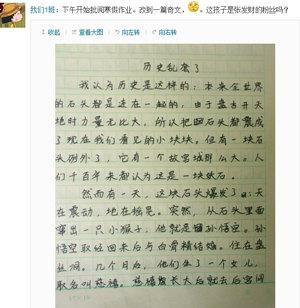 我们1班：下午开始批阅寒假作业。改到一篇奇文，这孩子是张发财的粉丝吗？
收起 查看大图 向左转 向右转
历史乱套了
我认为历史是这样的：本来全世界
的石头都是连在一起的，由于盘古开天
地时力量无比大，所以把石头都震成
了现在我们看见的小块块。但有一块石
头例外了，它有一个故宫城那么大。人
们千百年来都认为这是一块铁石。
然而有一天，这块石头爆发了：天
在震动，地在摇晃。突然，从石头里面
窜出一只小猴子，他就是孙悟空。孙
悟空取经回来后与白骨精结婚，住在盘
丝洞。几个月后，他们生了一个女儿，
取名叫慈禧。慈禧长大后就去后宫闹